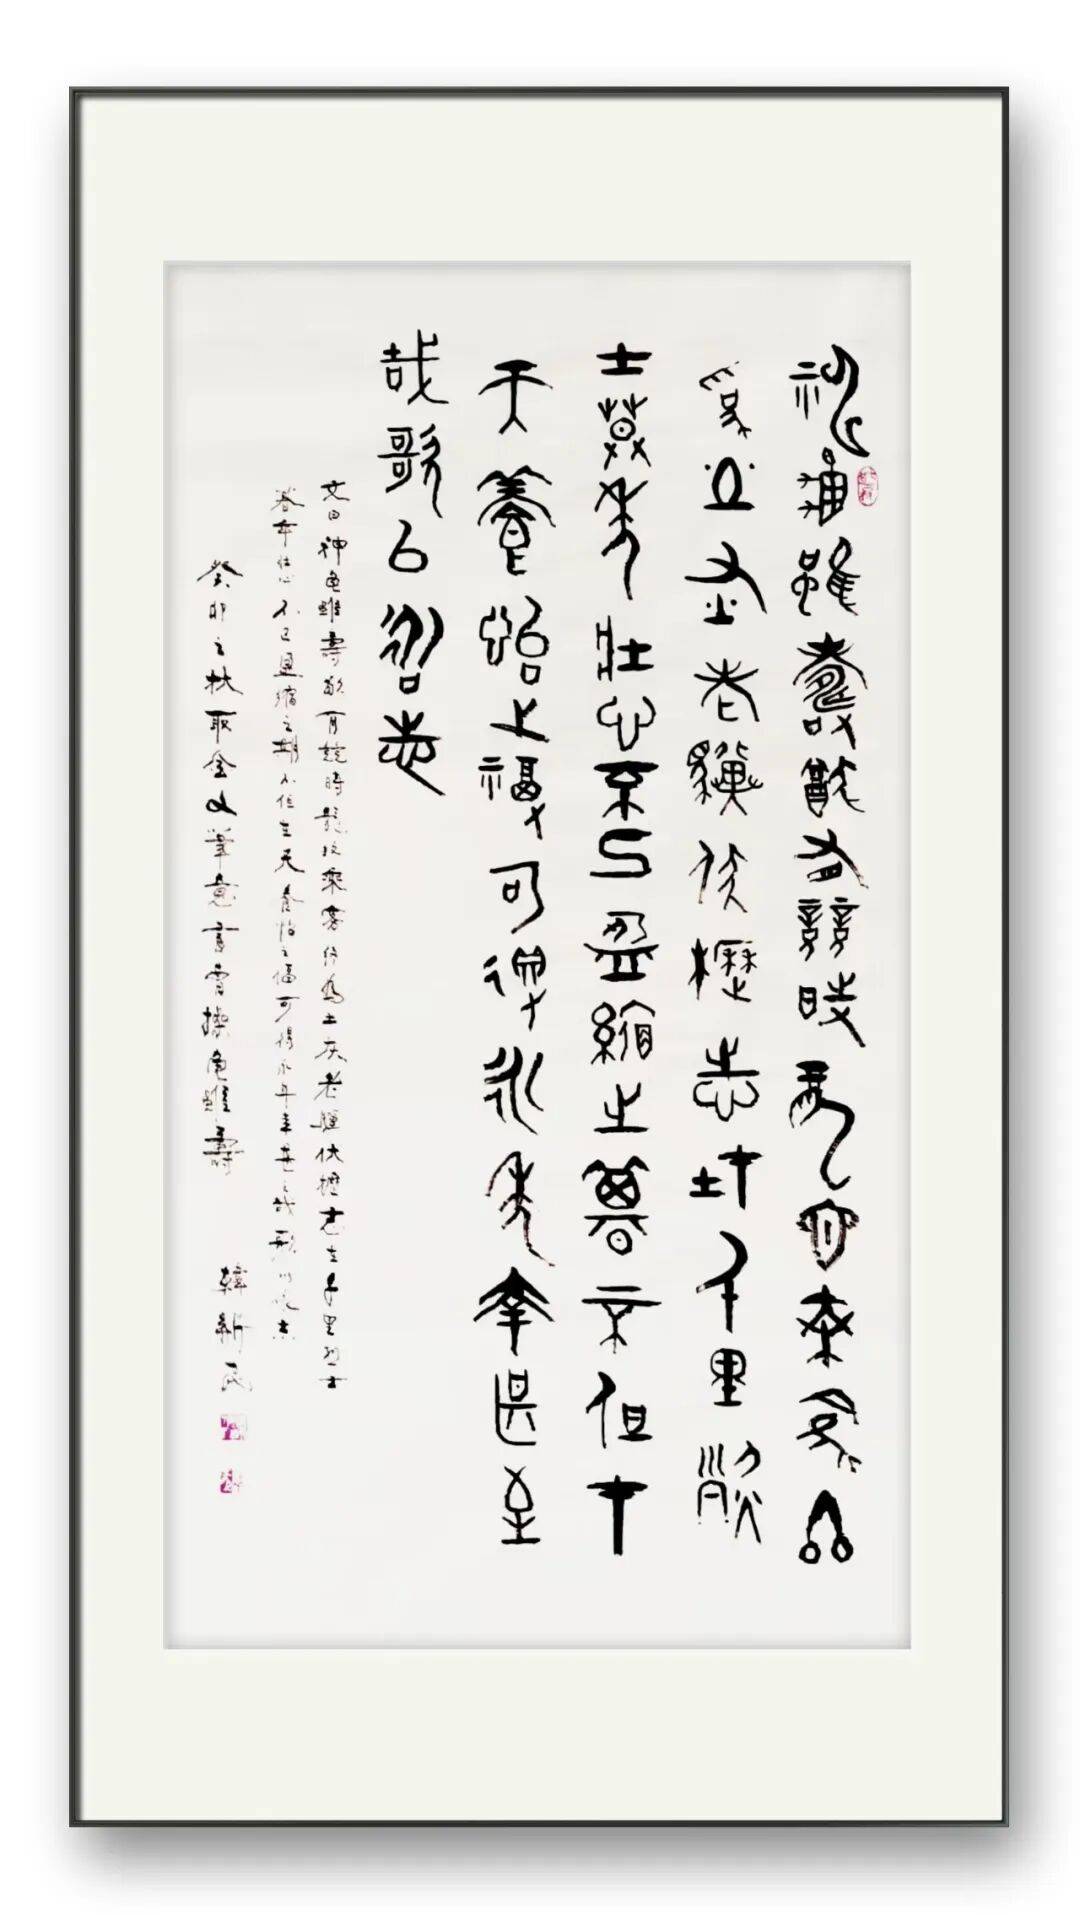 神龜雖壽猷有競時騰蛇乘霧終
為土灰老驥伏櫪志在千里烈
士暮年壯心不已盈縮之期不但在
天養怡之福可得永年幸甚至
哉歌以詠志
文曰神龜雖壽猷有競時騰蛇乘霧終為土灰老驥伏櫪志在千里烈士
暮年壯心不已盈縮之期不但在天養怡之福可得永年幸甚至哉歌以詠志
癸卯之秋取金文筆意書曹操龜雖壽 韓新民